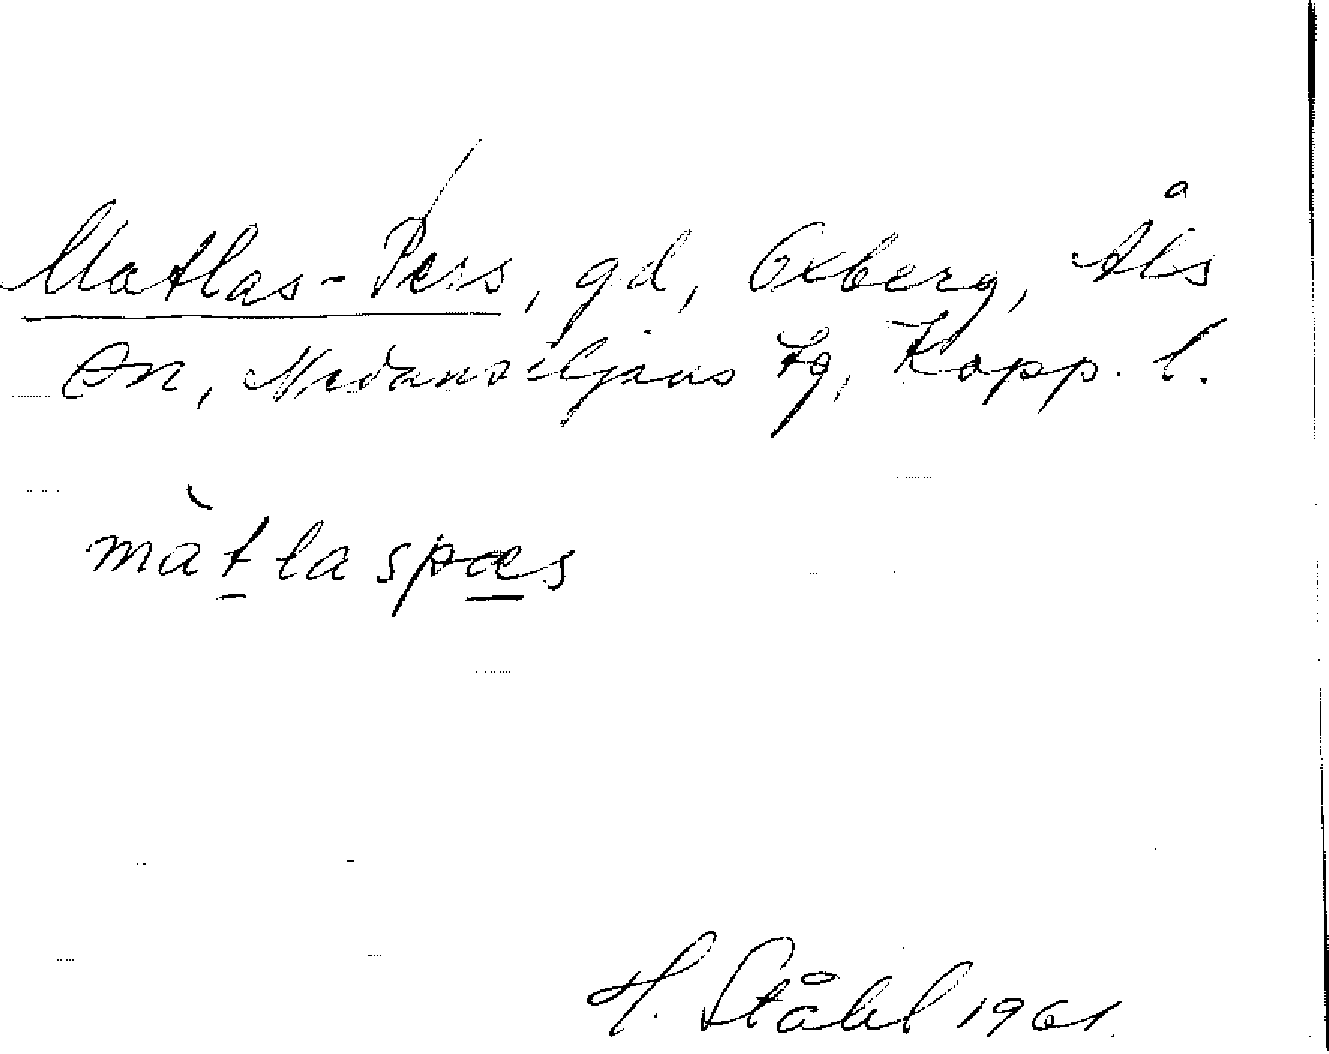 Matlas-Pers, gd, Oxberg, Åls
sn, Nedansiljans fg, Kopp. l.
màtlaspæs
H. Ståhl 1961.